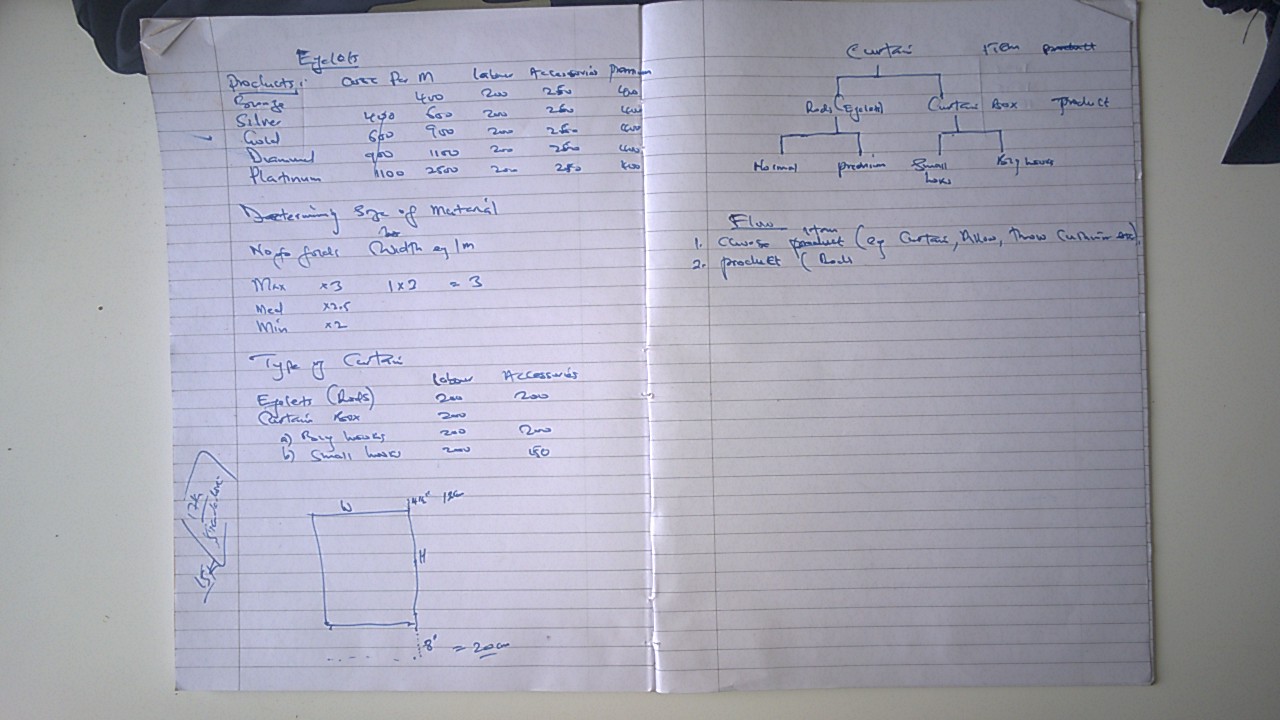 Eyelets
Products: Cost Per M Labour Accessories Premium
Bronze 400 200 250 400
Silver 400 600 200 250 400
Gold 600 900 200 250 400
Diamond 900 1100 200 250 400
Platinum 1100 2500 200 250 400
Determining Size of Material
No of folds Width eg 1m
Max x3 1x3 = 3
Med x2.5
Min x2
Type of Curtain Labour Accessories
Eyelets (Rods) 200 200
Curtain Box 200
a) Big hooks 200 200
b) Small hooks 200 150
W
H
8" = 20cm
Curtain Item product
Rods (Eyelets) Curtain Box product
Normal Premium Small hooks Big hooks
Flow Item
1. Choose product (eg Curtain, Pillow, Throw Cushion etc)
2. product (Rods